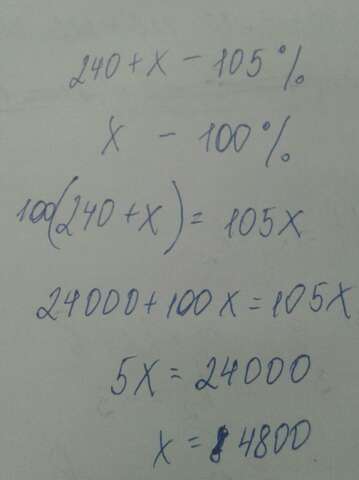 240 + x - 105%
x - 100%
100(240 + x) = 105x
24000 + 100x = 105x
5x = 24000
x = 4800